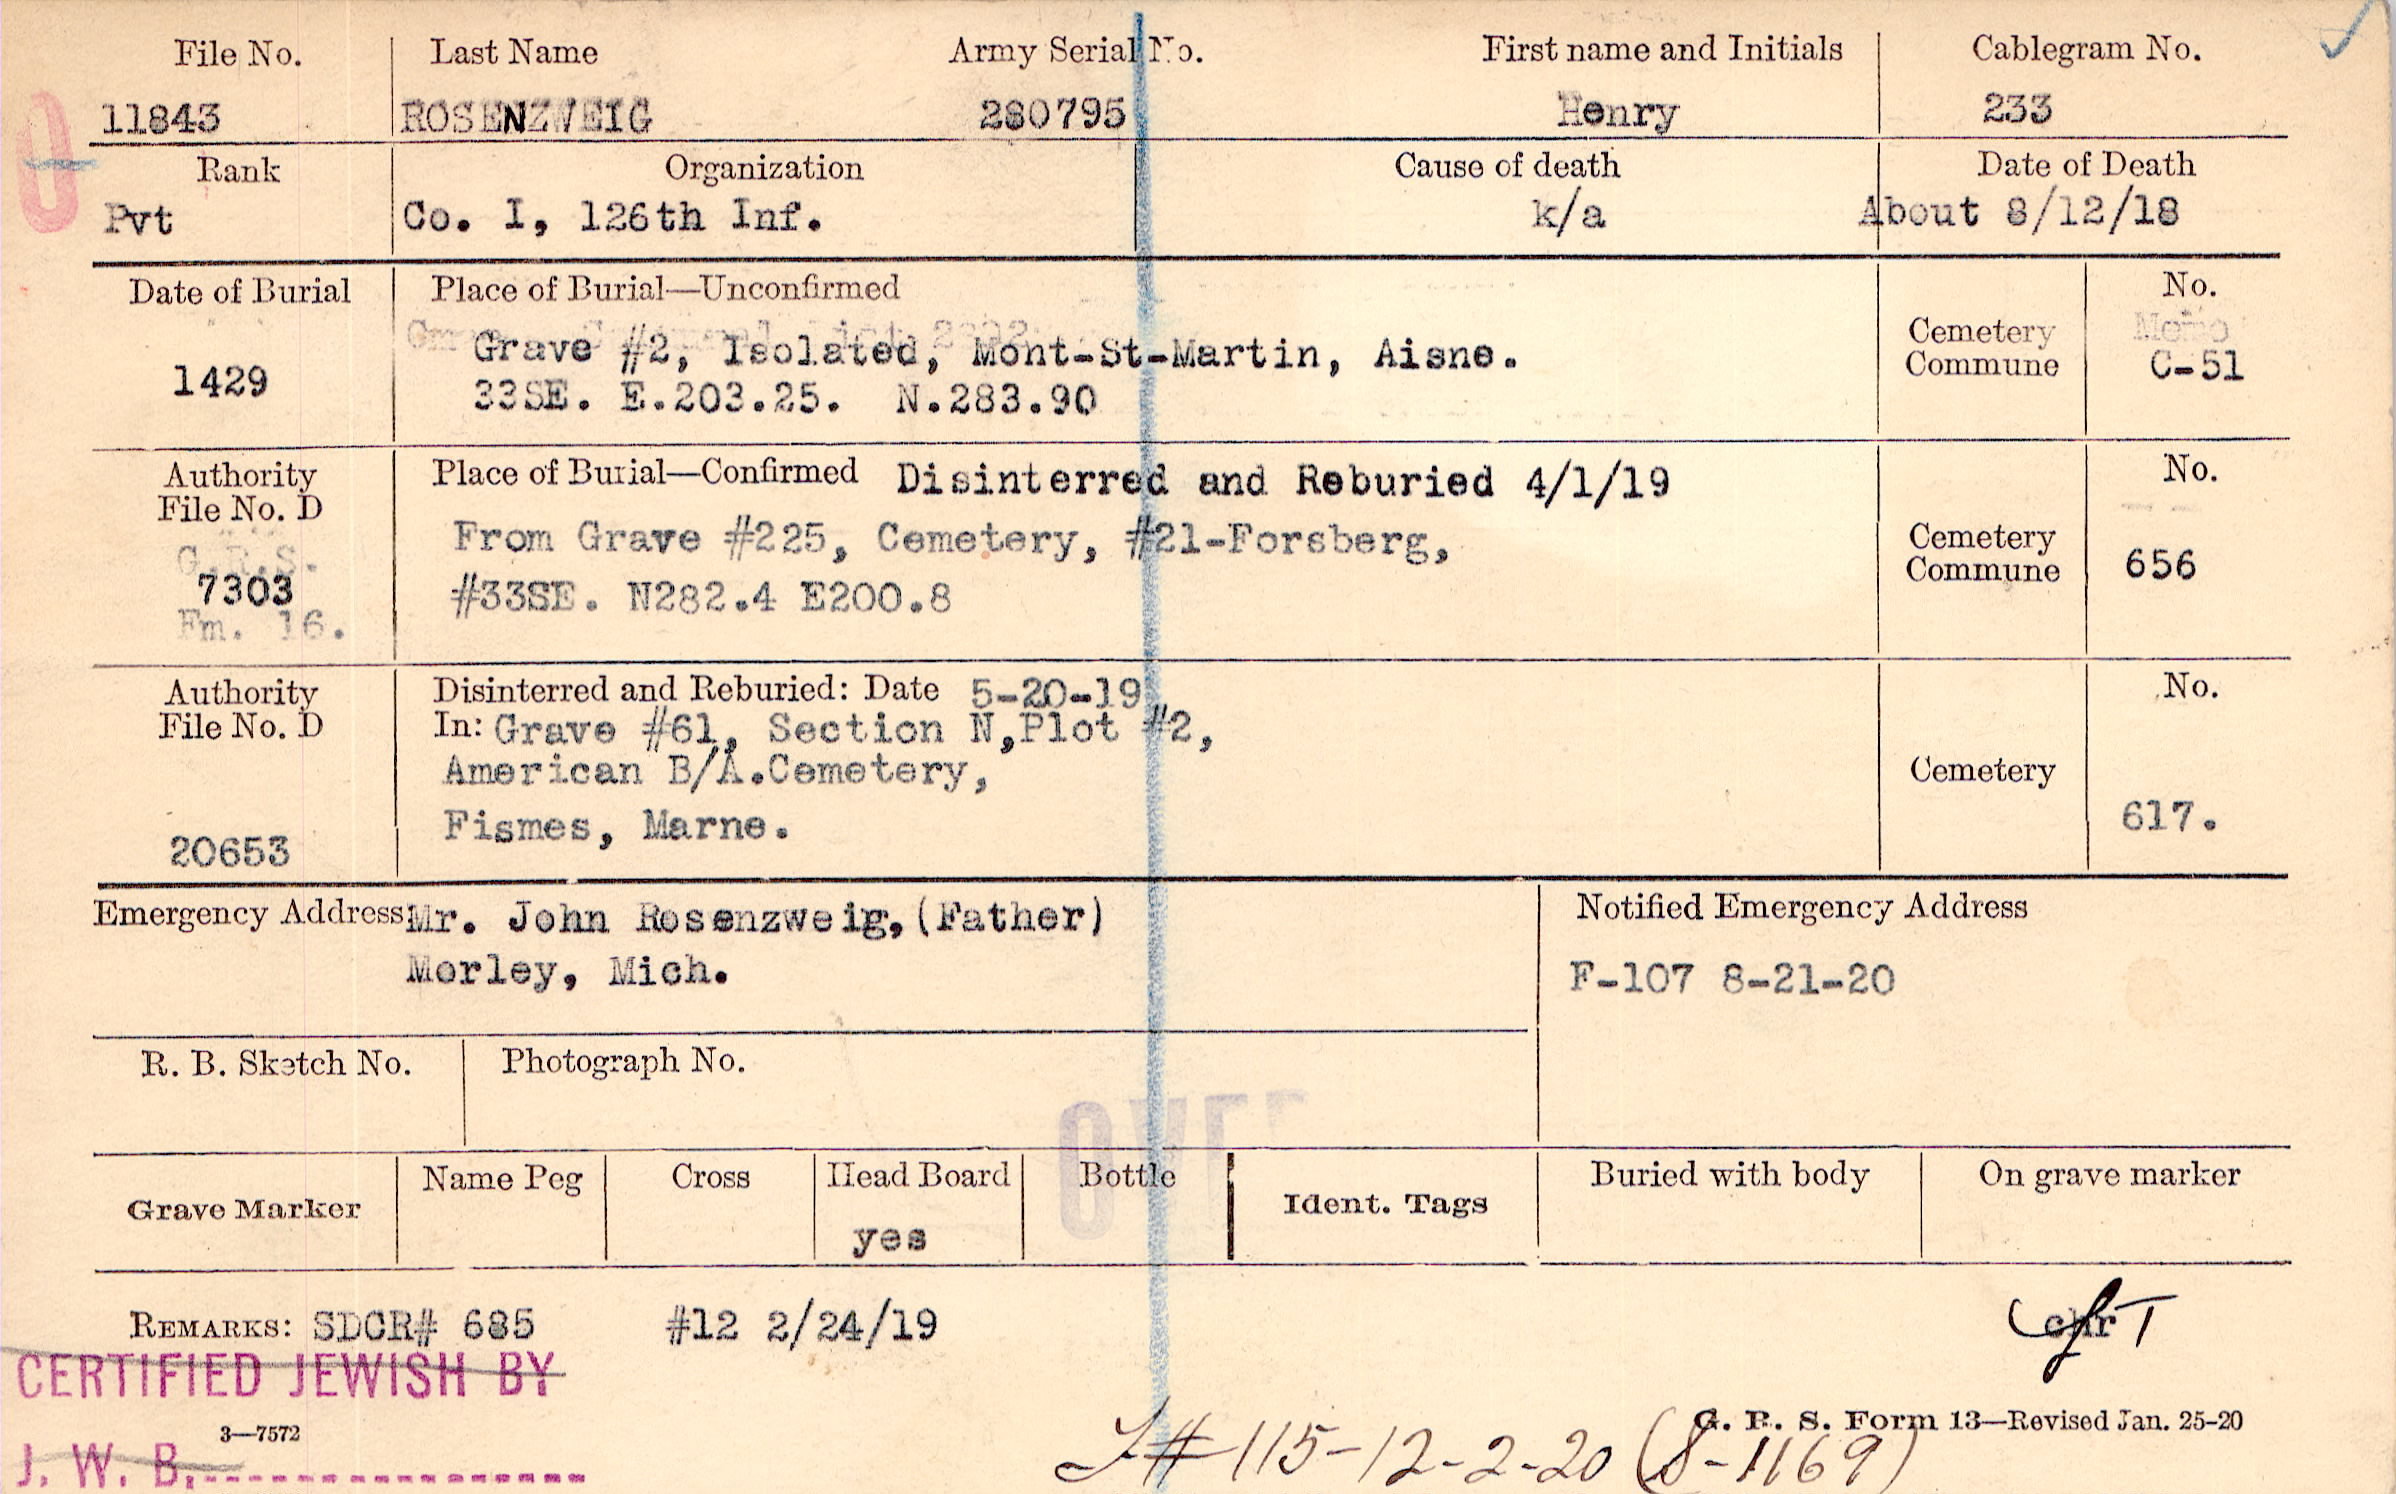 File No. Last Name Army Serial No. First name and Initials Cablegram No.
11843 ROSENZWEIG 280795 Henry 233
Rank Organization Cause of death Date of Death
Pvt Co. I, 126th Inf. k/a About 8/12/18
Date of Burial Place of Burial—Unconfirmed No.
Grave #2, Isolated, Mont-St-Martin, Aisne. Cemetery Memo
1429 33SE. E.203.25. N.283.90 Commune C-51
Authority Place of Burial—Confirmed Disinterred and Reburied 4/1/19 No.
File No. D From Grave #225, Cemetery, #21-Forsberg, Cemetery
G.R.S. Commune 656
7303 #33SE. N282.4 E200.8
Fm. 16.
Authority Disinterred and Reburied: Date 5-20-19 No.
File No. D In: Grave #61, Section N,Plot #2,
American B/A.Cemetery, Cemetery
Fismes, Marne. 617.
20653
Emergency Address Mr. John Rosenzweig,(Father) Notified Emergency Address
Morley, Mich. F-107 8-21-20
R. B. Sketch No. Photograph No.
OVER
Grave Marker Name Peg Cross Head Board Bottle Ident. Tags Buried with body On grave marker
yes
REMARKS: SDCR# 685 #12 2/24/19
CERTIFIED JEWISH BY
3—7572 G. R. S. Form 13—Revised Jan. 25-20
J. W. B.
#115-12-2-20 (S-1169)